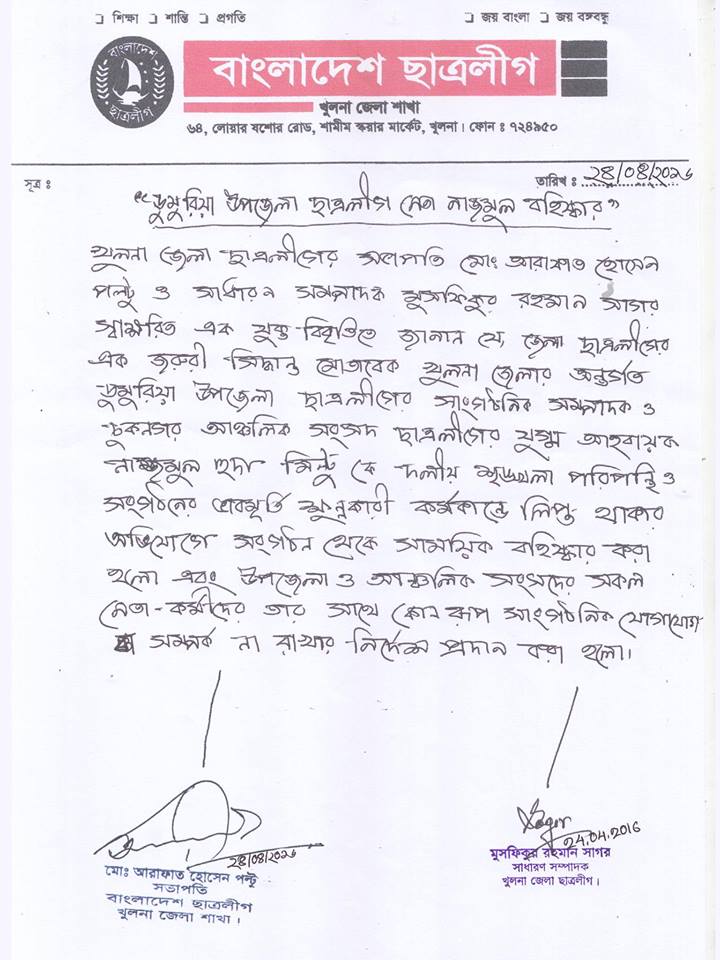 ❏ শিক্ষা ❏ শান্তি ❏ প্রগতি
❏ জয় বাংলা ❏ জয় বঙ্গবন্ধু
বাংলাদেশ
ছাত্রলীগ
বাংলাদেশ ছাত্রলীগ
খুলনা জেলা শাখা
৬৪, লোয়ার যশোর রোড, শামীম স্কয়ার মার্কেট, খুলনা। ফোন ঃ ৭২৪৯৫০
সূত্র ঃ
তারিখ ঃ ২৪/০৪/২০১৬
“ডুমুরিয়া উপজেলা ছাত্রলীগ নেতা নাজমুল বহিস্কার”
খুলনা জেলা ছাত্রলীগের সভাপতি মোঃ আরাফাত হোসেন
পল্টু ও সাধারন সম্পাদক মুসফিকুর রহমান সাগর
স্বাক্ষরিত এক যুক্ত বিবৃতিতে জানান যে, জেলা ছাত্রলীগের
এক জরুরী সিদ্ধান্ত মোতাবেক খুলনা জেলার অন্তর্গত
ডুমুরিয়া উপজেলা ছাত্রলীগের সাংগঠনিক সম্পাদক ও
চুকনগর আঞ্চলিক সংসদ ছাত্রলীগের যুগ্ম আহবায়ক
নাজমুল হুদা মিন্টু কে দলীয় শৃঙ্খলা পরিপন্থি ও
সংগঠনের ভাবমূর্তি ক্ষুন্নকারী কর্মকান্ডে লিপ্ত থাকার
অভিযোগে সংগঠন থেকে সাময়িক বহিস্কার করা
হলো এবং উপজেলা ও আঞ্চলিক সংসদের সকল
নেতা-কর্মীদের তার সাথে কোন রূপ সাংগঠনিক যোগাযোগ
সম্পর্ক না রাখার নির্দেশ প্রদান করা হলো।
২৪/০৪/২০১৬
মোঃ আরাফাত হোসেন পল্টু
সভাপতি
বাংলাদেশ ছাত্রলীগ
খুলনা জেলা শাখা।
Sagor
24.04.2016
মুসফিকুর রহমান সাগর
সাধারণ সম্পাদক
খুলনা জেলা ছাত্রলীগ।